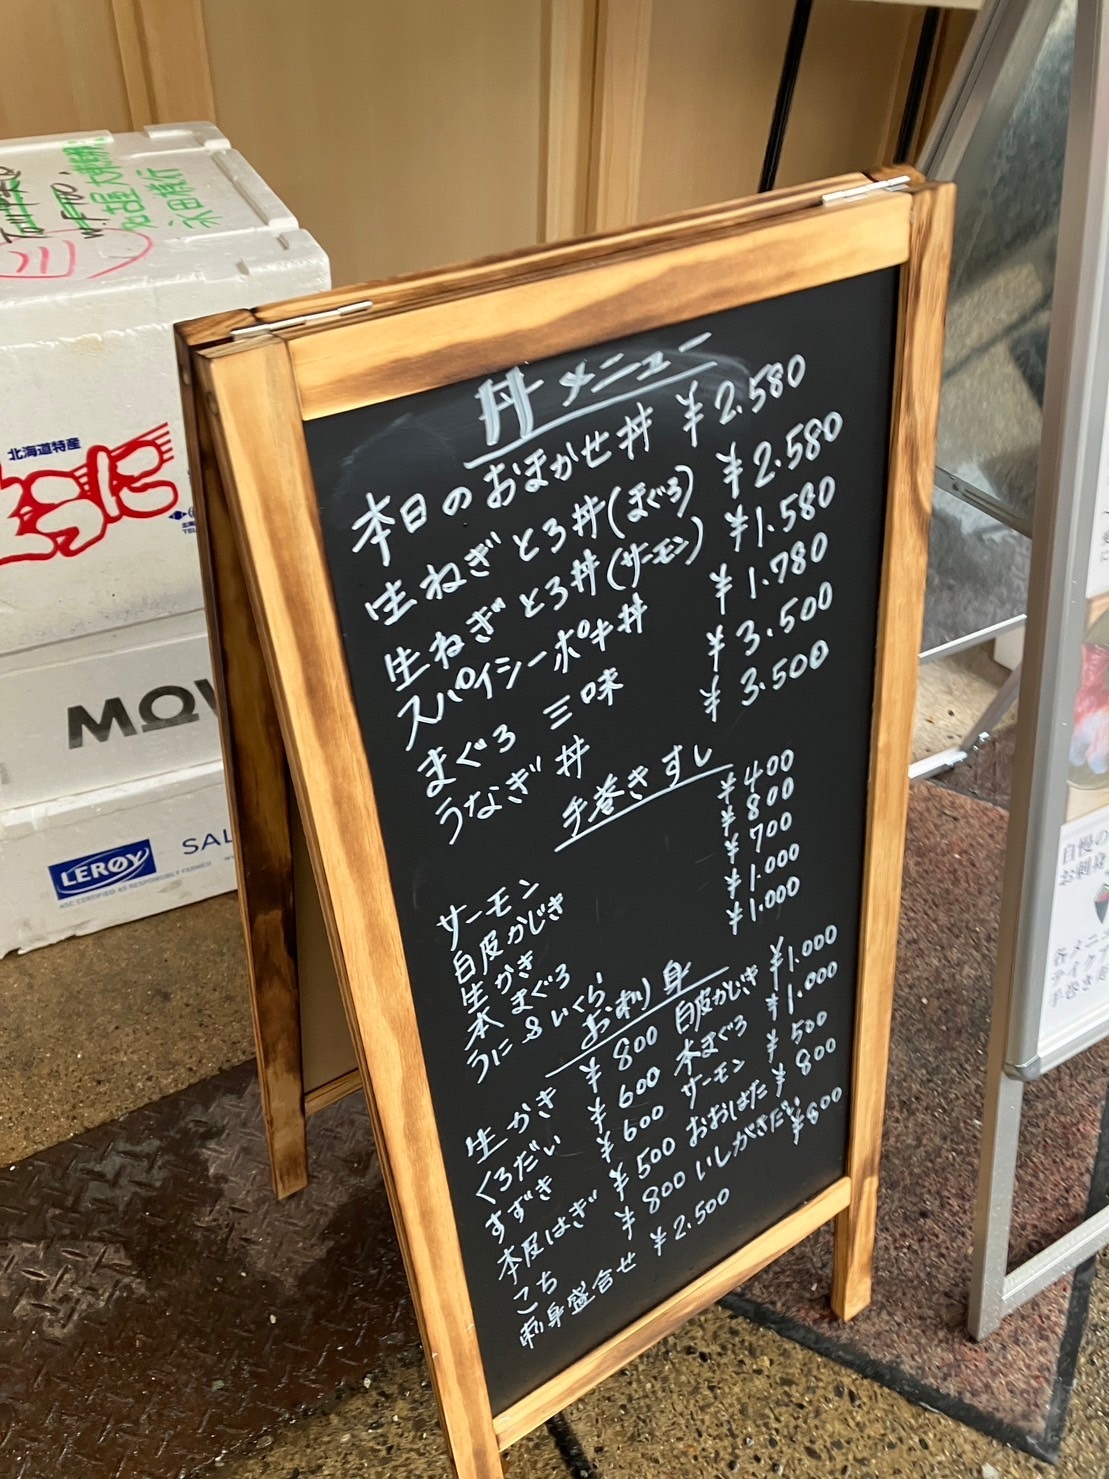 丼メニュー
本日のおまかせ丼 ¥2.580
生ねぎとろ丼(まぐろ) ¥2.580
生ねぎとろ丼(サーモン) ¥1.580
スパイシーポキ丼 ¥1.780
まぐろ 三味 ¥3.500
うなぎ 丼 ¥3.500
手巻きすし
サーモン ¥400
白皮かじき ¥800
生かき ¥700
本まぐろ ¥1.000
うに&いくら ¥1.000
お刺身
生かき ¥800 白皮かじき ¥1.000
くろだい ¥600 本まぐろ ¥1.000
すずき ¥600 サーモン ¥500
本皮はぎ ¥500 おおしまだた ¥800
こち ¥800 いしがきだい ¥800
刺身盛合せ ¥2.500
名古屋 大東魚類
永田勝行
北海道特産
MOW
LEROY
SAL
自慢の
お刺身
各メニ
テイクア
手巻き寿